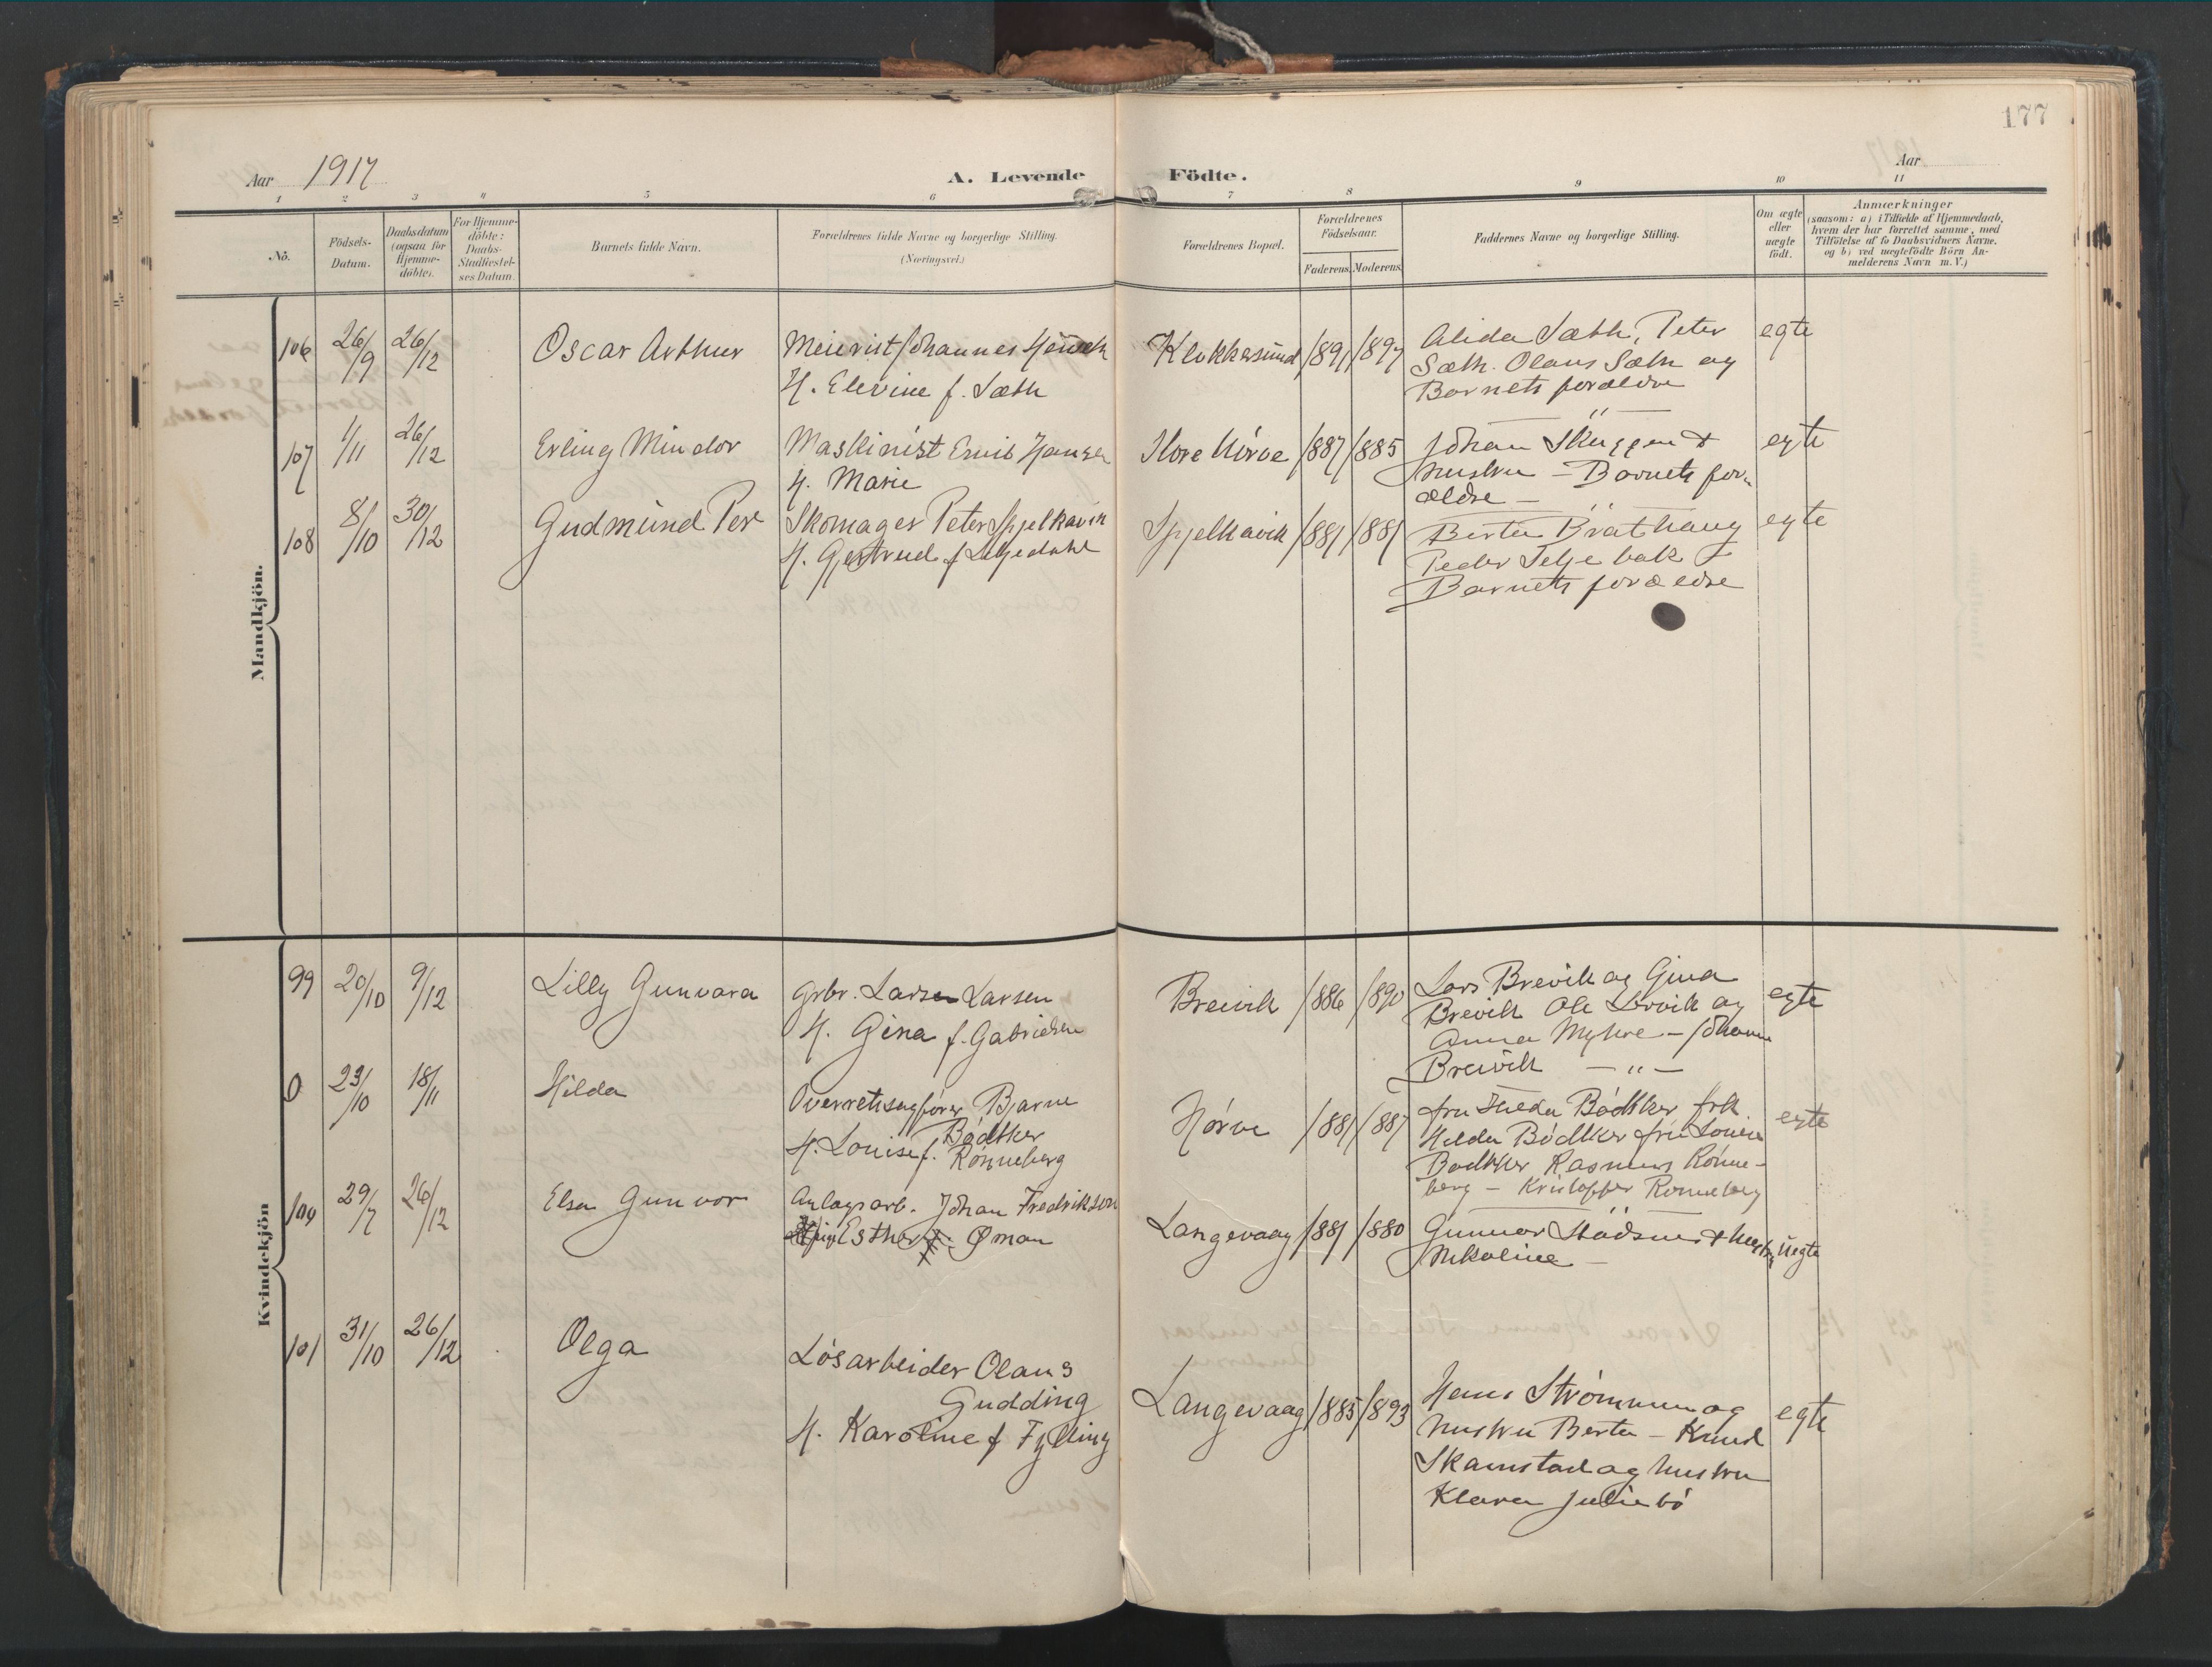 177
Aar 1917
A. Levende Födte.
Aar
1 2 3 4 5 6 7 8 9 10 11
Nö.
Födsels-Datum.
Daabsdatum (ogsaa for Hjemme-döbte).
For Hjemme-döbte: Daabs-Stadfæstel-ses Datum.
Barnets fulde Navn.
Forældrenes fulde Navne og borgerlige Stilling. (Næringsvei.)
Forældrenes Bopæl.
Forældrenes Födselsaar.
Faderens. Moderens.
Faddernes Navne og borgerlige Stilling.
Om ægte eller uægte födt.
Anmærkninger
(saasom: a) i Tilfælde af Hjemmedaab,
hvem der har forrettet samme, med
Tilföielse af to Daabsvidners Navne.
og b) ved uægtefödte Börn An-
melderens Navn m. V.)
Mandkjön.
106 26/9 26/12 Oscar Arthur Meierist Johannes
H. Elevine f. Sæth
Klokkersund 1891 1897
Alida Sæth, Peter
Sæth. Olaus Sæth og
Barnets forældre
egte
107 1/11 26/12 Erling Mindor Maskinist Emil Hansen
H. Marie
Store Nörve 1887 1885
Johan Skuggen &
hustru – Barnets for-
ældre –
egte
108 8/10 30/12 Gudmund Per Skomager Peter Spjelkavik
H. Gjertrud f
Spjelkavik 1881 1881
Berta Brathaug
Peder Seljebak &
Barnets forældre
egte
Kvindekjön
99 20/10 9/12 Lilly Gunvara Grbr. Larsen Larsen
H. Gina f. Gabrielsen
Breivik 1886 1890
Lars Brevik og Gina
Brevik Ole Brevik og
Anna Myhre – Johan
Breivik – " –
egte
0 23/10 18/11 Hilda Overretssagfører Bjarne
Bødtker
H. Louise f. Rönneberg
Nörve 1881 1887
fru Bødtker frk.
Hilda Bödtker fru Louise
Bødtker Rasmus Rönne-
berg – Kristoffer Rönneberg
egte
100 29/7 26/12 Elsa Gunvor Anlagsarb. Johan Fredrikson
pige Esther Öman
Langevaag 1881 1880
Gunnar & hustru
Nikoline –
uegte
101 31/10 26/12 Olga Lösarbeider Olaus
Gudding
H. Karoline f Fylling
Langevaag 1885 1893
Hans Strömmen og
hustru Berta – Knud
Skamstad og hustru
Klara Juliebö
egte